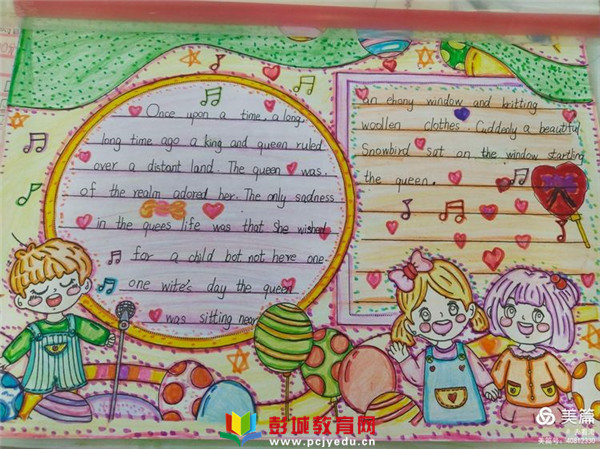 Once upon a time, a long
long time ago a king and queen ruled
over a distant land. The queen was
of the realm adored her. The only sadness
in the quees life was that she wished
for a child bot not here one
one wite's day the queen
was sitting near
an ebony window and britting
woollen clothes. Cuddedly a beautiful
Snowbird sat on the window startling
the queen.
彭城教育网
www.pcjyedu.cn
美篇
美篇号:40812330